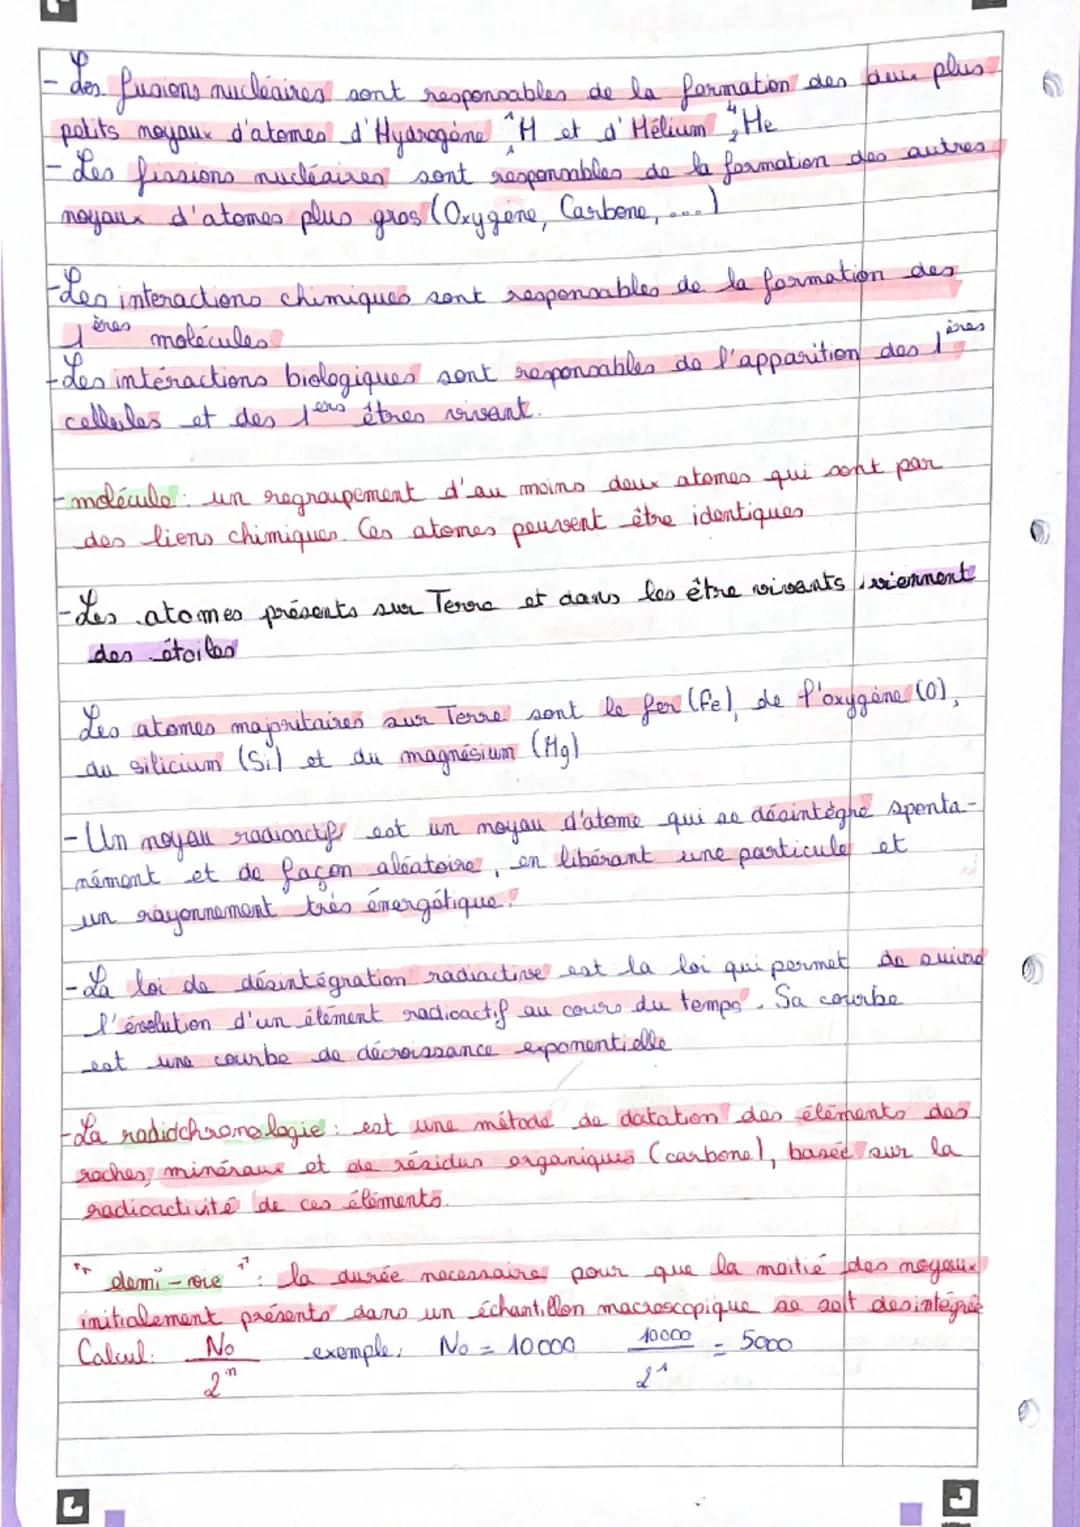 - Les fusions nucléaires sont responsables de la formation des deux plus
petits noyaux d'atomes d'Hydrogène ¹₁H et d'Hélium ⁴₂He
- Les fissions nucléaires sont responsables de la formation des autres
noyaux d'atomes plus gros (Oxygène, Carbone, ....)
- Les interactions chimiques sont responsables de la formation des
1ères molécules
- Les intéractions biologiques sont responsables de l'apparition des 1ères
cellules et des 1ers êtres vivant.
- molécule : un regroupement d'au moins deux atomes qui sont par
des liens chimiques. Ces atomes peuvent être identiques
- Les atomes présents sur Terre et dans les être vivants, viennent
des étoiles
Les atomes majoritaires sur Terre sont le fer (Fe), de l'oxygène (O),
du silicium (Si) et du magnésium (Mg)
- Un noyau radioactif est un noyau d'atome qui se désintègre sponta-
nément et de façon aléatoire, en libérant une particule et
un rayonnement très énergétique.
- La loi de désintégration radiactive est la loi qui permet de suivre
l'évolution d'un élément radioactif au cours du temps. Sa courbe
est une courbe de décroissance exponentielle
- La radiochronologie : est une métode de datation des éléments des
roches, minéraux et de résidus organiques (carbone), basée sur la
radioactivité de ces éléments.
" demi-vie " : la durée necessaire pour que la moitié des noyaux
initialement présents dans un échantillon macroscopique se soit desintégrée
Calcul: N₀/2ⁿ exemple: N₀ = 10 000 10000/2¹ = 5000